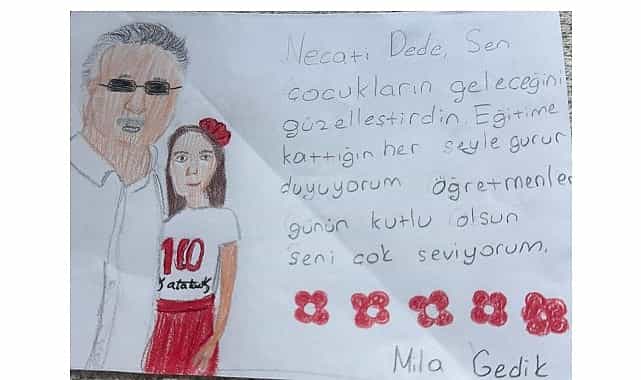 Necati Dede, Sen
çocukların geleceğini
güzelleştirdin. Eğitime
kattığın her şeyle gurur
duyuyorum öğretmenler
günün kutlu olsun
seni çok seviyorum.
100
atatürk
Mila Gedik